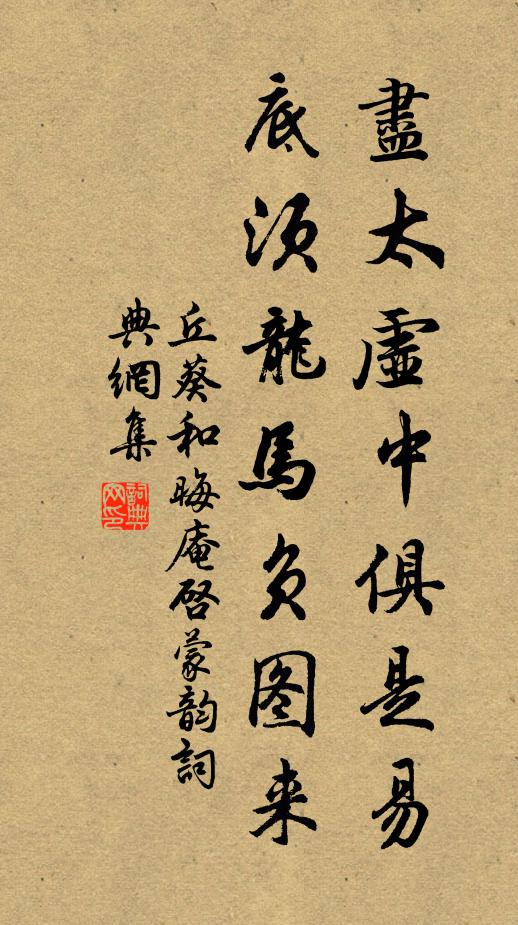 盡太虛中俱是易
底須龍馬负图来
丘葵和晦庵啓蒙韵詞
典網集
詞典
网印